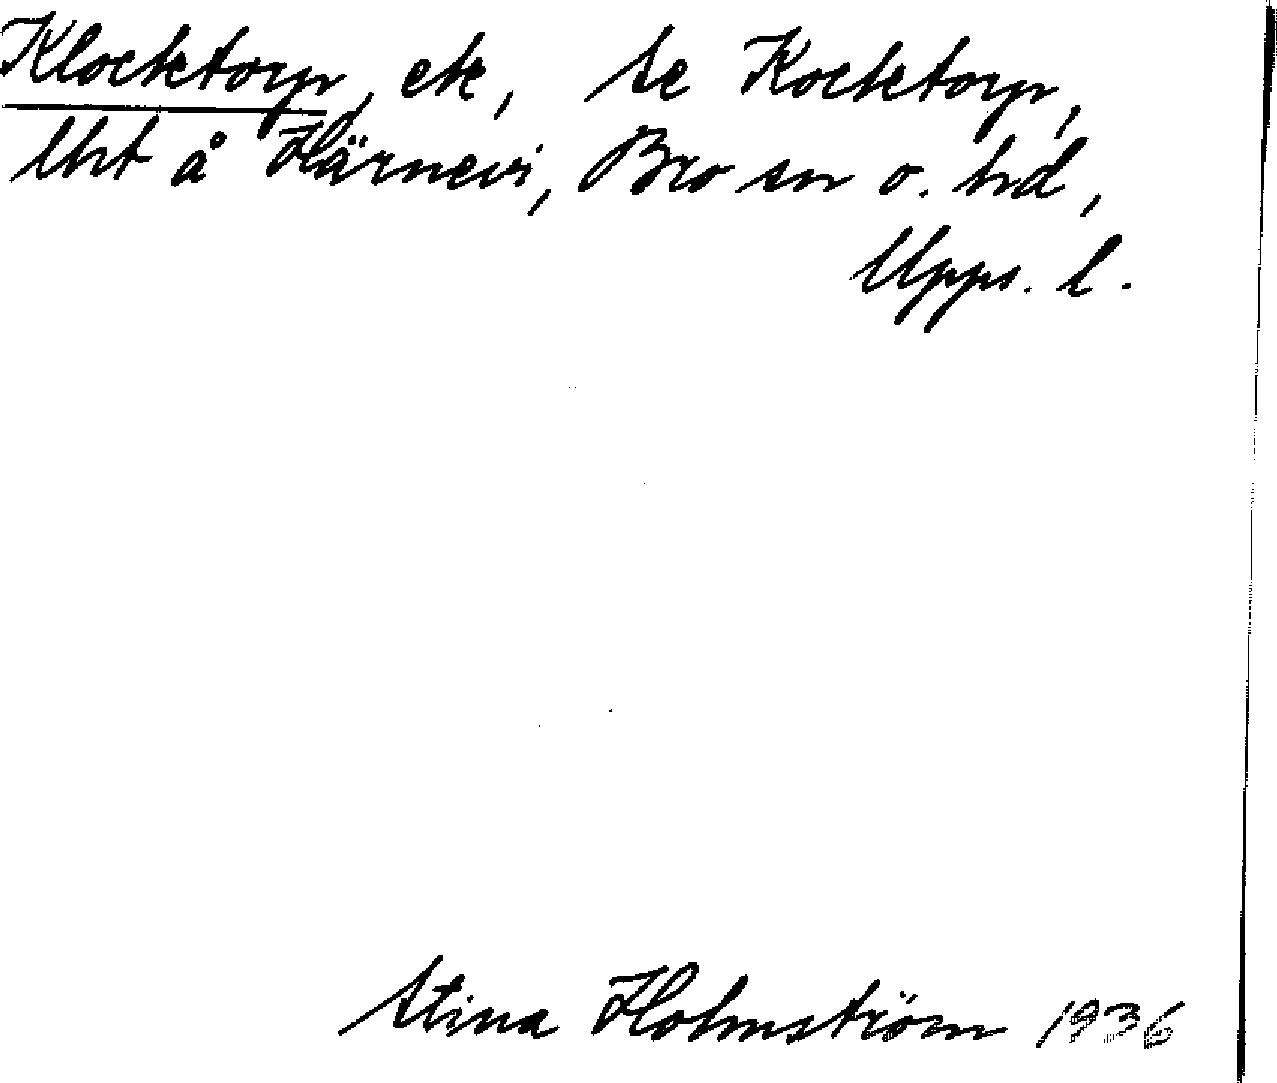 Klocktorp, ek, se Kocktorp,
Uht å Härnevi, Bro sn o. hd,
Upps. l.
Stina Holmström 1936